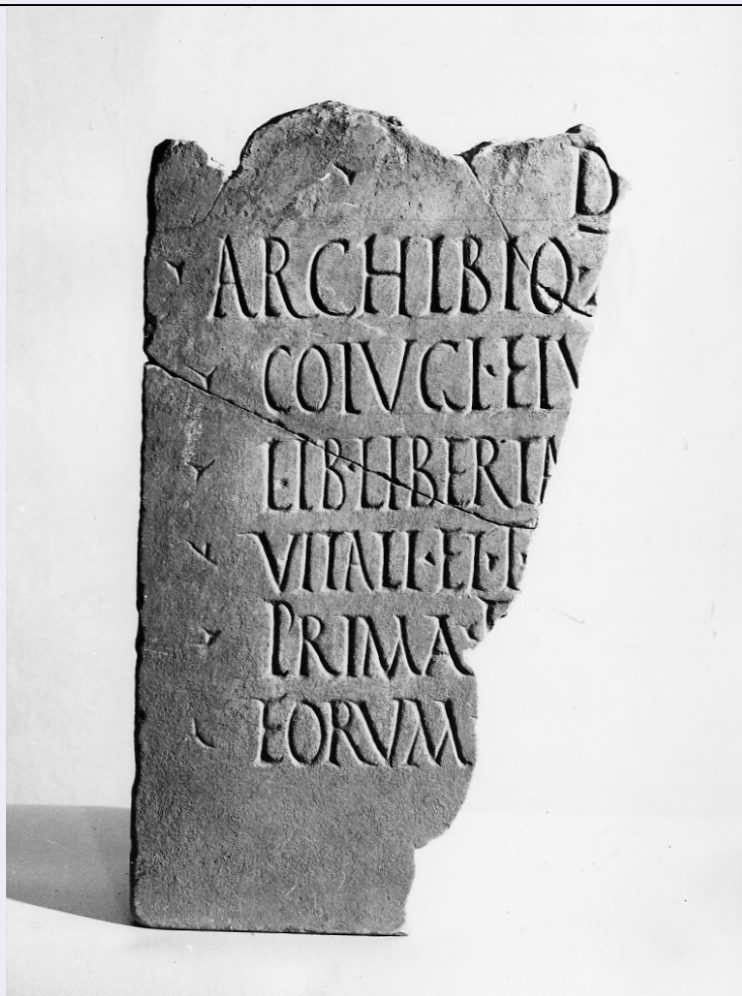 D
ARCHIBI Q
COIVGI·EIV
LIB·LIBERTA
VITALI·ET·
PRIMA·
EORVM